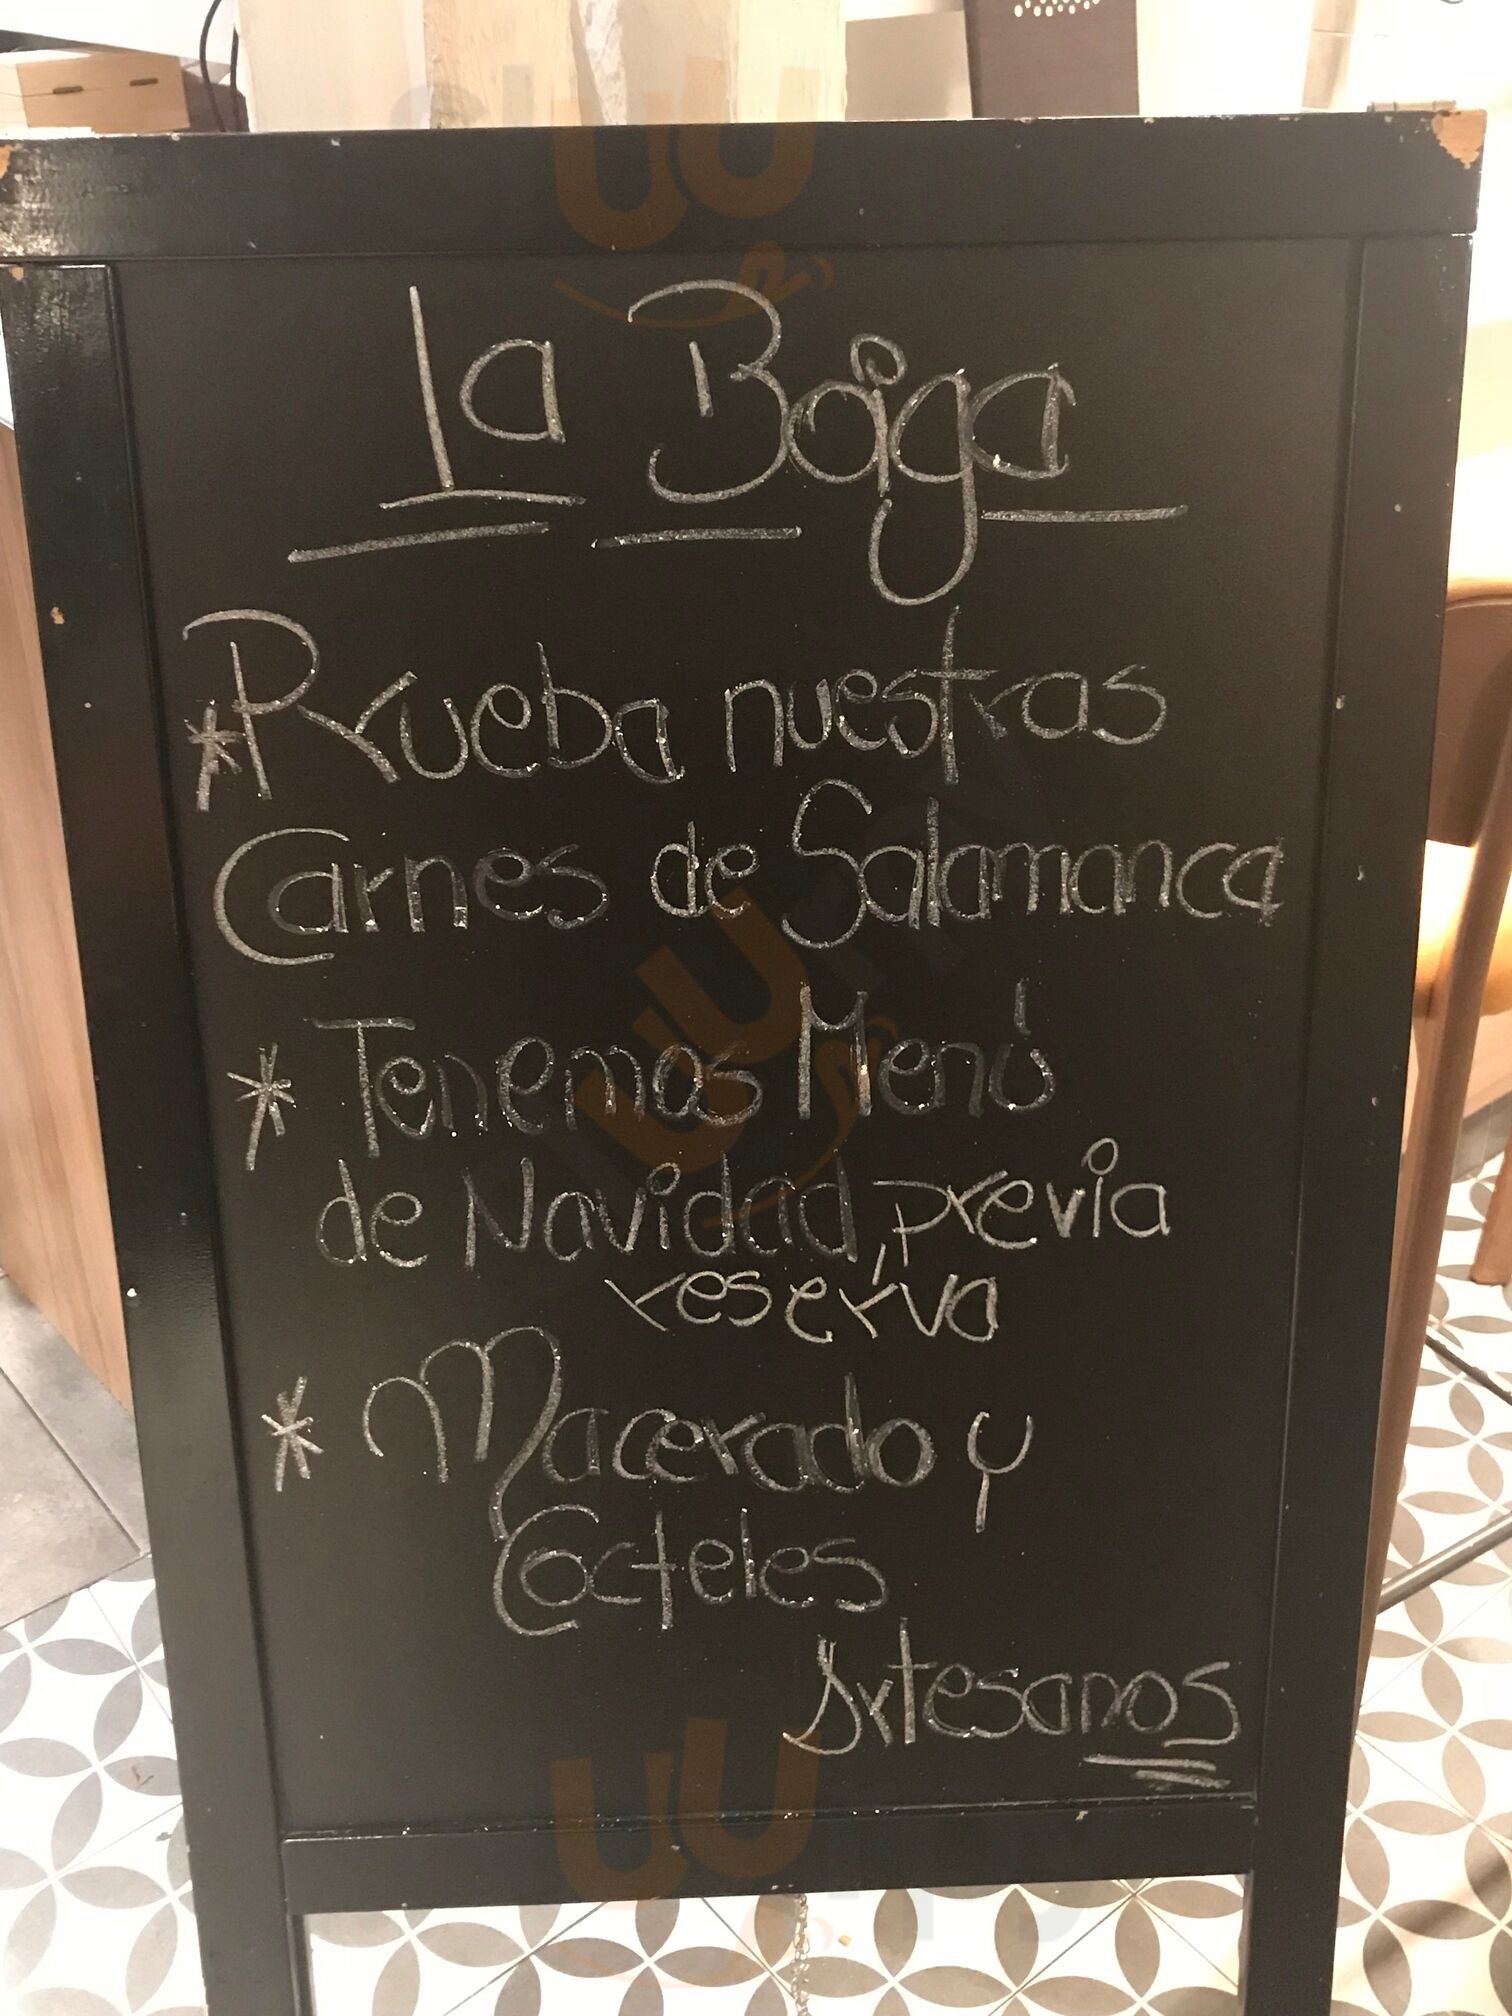 La Boiga
* Prueba nuestras
Carnes de Salamanca
* Tenemos Menú
de Navidad, previa
reserva
* Macerado y
Cocteles
Artesanos